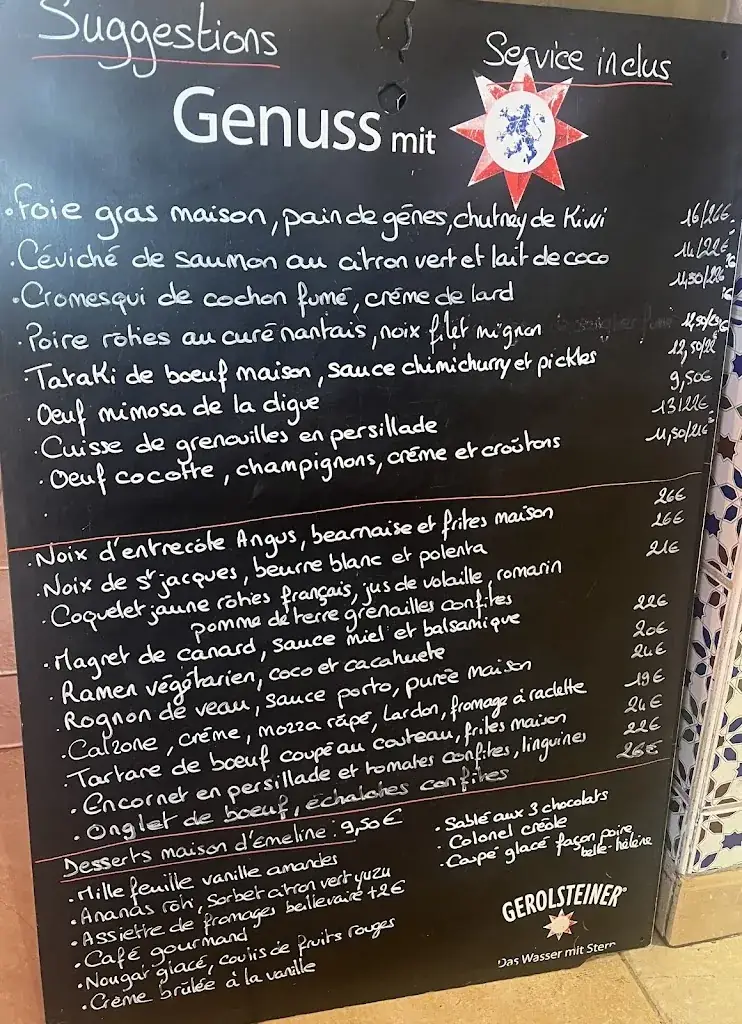 Suggestions
Service inclus
Genuss mit
· Foie gras maison, pain de gênes, chutney de Kiwi 16/26€
· Céviché de saumon au citron vert et lait de coco 14/22€
· Cromesqui de cochon fumé, crème de lard
· Poire rôties au curé nantais, noix filet mignon
· Tataki de boeuf maison, sauce chimichurry et pickles
· Oeuf mimosa de la digue 9,50€
· Cuisse de grenouilles en persillade 13/22€
· Oeuf cocotte, champignons, crème et croûtons 11,50/21€
· Noix d'entrecôte Angus, bearnaise et frites maison 26€
· Noix de St jacques, beurre blanc et polenta 26€
· Coquelet jaune rôties français, jus de volaille, romarin 21€
pomme de terre grenailles confites
· Magret de canard, sauce miel et balsamique 22€
· Ramen végétarien, coco et cacahuete 20€
· Rognon de veau, sauce porto, purée maison 24€
· Calzone, crème, mozza râpé, lardon, fromage à raclette 19€
· Tartare de boeuf coupé au couteau, frites maison 24€
· Encornet en persillade et tomates confites, linguines 22€
· Onglet de boeuf, échalotes confites 26€
Desserts maison d'émeline : 9,50€
· Mille feuille vanille amandes
· Ananas rôti, Sorbet citron vert yuzu
· Assiette de fromages beillevaire +2€
· Café gourmand
· Nougat glacé, coulis de fruits rouges
· Crème brûlée à la vanille
· Sablé aux 3 chocolats
· Colonel créole
· Coupe glacé façon poire
belle-hélène
GEROLSTEINER®
Das Wasser mit Stern